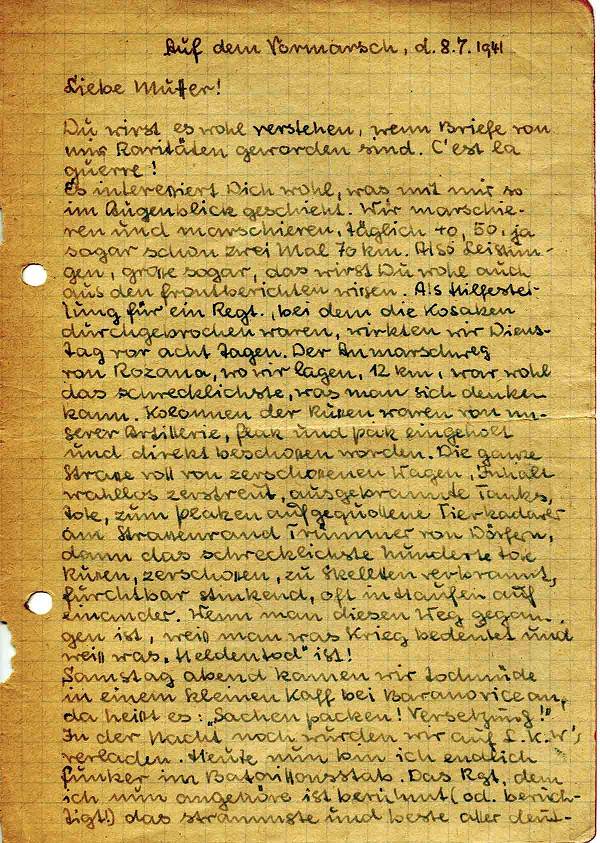 Auf dem Vormarsch, d. 8.7.1941
Liebe Mutter!
Du wirst es wohl verstehen, wenn Briefe von
mir Raritäten geworden sind. C'est la
guerre!
Es interessiert Dich wohl, was mit mir so
im Augenblick geschieht. Wir marschie-
ren und marschieren, täglich 40, 50, ja
sogar schon zwei Mal 70 km. Also Leistun-
gen, große sogar, das wirst Du wohl auch
aus den Frontberichten wissen. Als Hilfestel-
lung für ein Regt., bei dem die Kosaken
durchgebrochen waren, wirkten wir Diens-
tag vor acht Tagen. Der Anmarschweg
von Rozana, wo wir lagen, 12 km, war wohl
das schrecklichste, was man sich denken
kann. Kolonnen der Russen waren von un-
serer Artillerie, Flak und Pak eingeholt
und direkt beschossen worden. Die ganze
Strasse voll von zerschossenen Wagen, Inhalt
wahllos zerstreut, ausgebrannte Tanks,
tote, zum platzen aufgequollene Tierkadaver
am Strassenrand Trümmer von Dörfern,
dann das schrecklichste hunderte tote
Russen, zerschossen, zu Skeletten verbrannt,
furchtbar stinkend, oft in Haufen auf
einander. Wenn man diesen Weg gegan-
gen ist, weiß man was Krieg bedeutet und
weiß was „Heldentod" ist!
Samstag abend kamen wir todmüde
in einem kleinen Kaff bei Baranovice an,
da heißt es: „Sachen packen! Versetzung!"
In der Nacht noch wurden wir auf L.K.W's
verladen. Heute nun bin ich endlich
Funker im Bataillonsstab. Das Rgt, dem
ich nun angehöre ist berühmt (od. berüch-
tigt!) das strammste und beste aller deut-